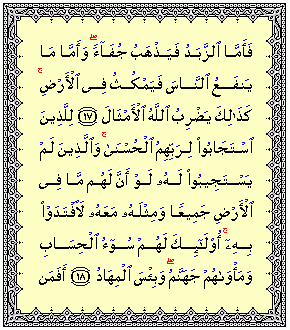 فَأَمَّا ٱلزَّبَدُ فَيَذْهَبُ جُفَآءًۖ وَأَمَّا مَا
يَنفَعُ ٱلنَّاسَ فَيَمْكُثُ فِى ٱلْأَرْضِۚ
كَذَٰلِكَ يَضْرِبُ ٱللَّهُ ٱلْأَمْثَالَ ﴿١٧﴾ لِلَّذِينَ
ٱسْتَجَابُوا۟ لِرَبِّهِمُ ٱلْحُسْنَىٰۚ وَٱلَّذِينَ لَمْ
يَسْتَجِيبُوا۟ لَهُۥ لَوْ أَنَّ لَهُم مَّا فِى
ٱلْأَرْضِ جَمِيعًا وَمِثْلَهُۥ مَعَهُۥ لَٱفْتَدَوْا۟
بِهِۦٓۚ أُو۟لَٰٓئِكَ لَهُمْ سُوٓءُ ٱلْحِسَابِ
وَمَأْوَىٰهُمْ جَهَنَّمُۖ وَبِئْسَ ٱلْمِهَادُ ﴿١٨﴾ أَفَمَن